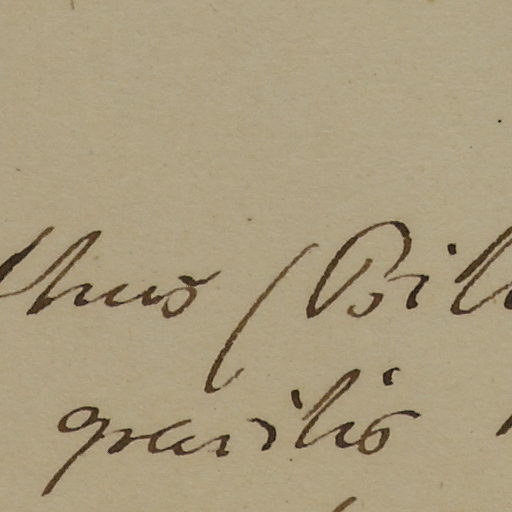 thus (Bil
gracilis